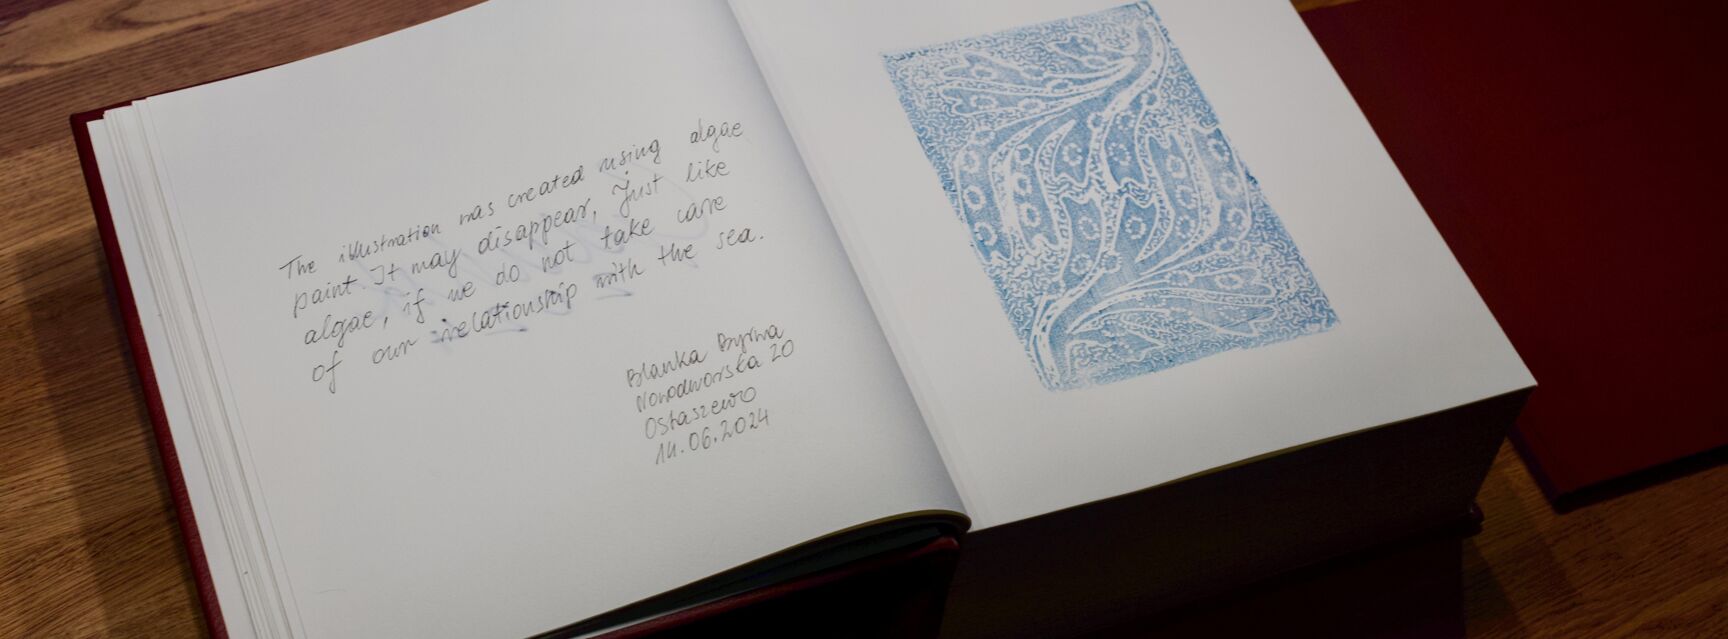 The illustration was created using algae
paint. It may disappear, Just like
algae, if we do not take care
of our relationship with the sea.
Blanka Byrwa
Nowodworska 20
Ostaszewo
14.06.2024